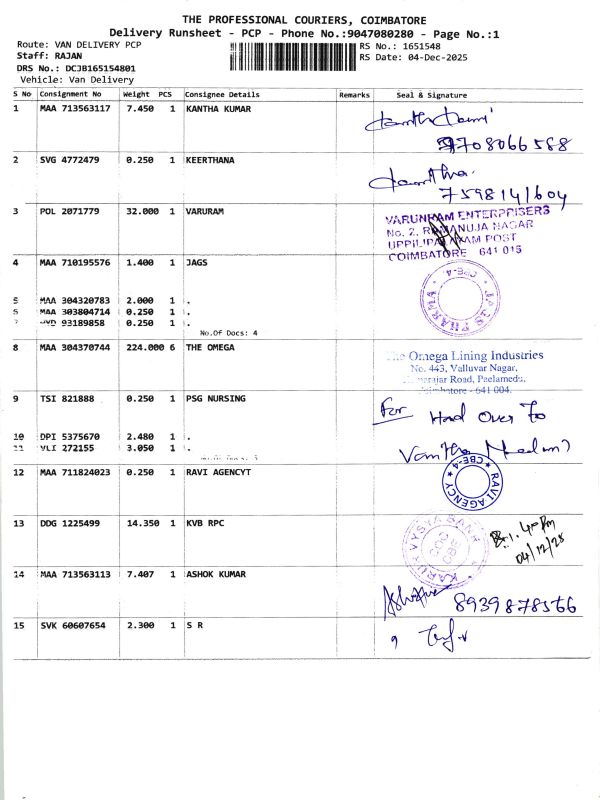 THE PROFESSIONAL COURIERS, COIMBATORE
Delivery Runsheet - PCP - Phone No.:9047080280 - Page No.:1
Route: VAN DELIVERY PCP
RS No.: 1651548
Staff: RAJAN
RS Date: 04-Dec-2025
DRS No.: DCJB165154801
Vehicle: Van Delivery
S No Consignment No Weight PCS Consignee Details Remarks Seal & Signature
1 MAA 713563117 7.450 1 KANTHA KUMAR
9708066588
2 SVG 4772479 0.250 1 KEERTHANA
7598141604
3 POL 2071779 32.000 1 VARURAM
VARUNRAM ENTERPRISERS
No. 2, RAMANUJA NAGAR
UPPILIPALAYAM POST
COIMBATORE 641 015
4 MAA 710195576 1.400 1 JAGS
CBE-4
5 MAA 304320783 2.000 1 .
6 MAA 303804714 0.250 1 .
7 HYD 93189858 0.250 1 .
No.Of Docs: 4
8 MAA 304370744 224.000 6 THE OMEGA
The Omega Lining Industries
No. 443, Valluvar Nagar,
Road, Peelamedu,
Coimbatore - 641 004.
9 TSI 821888 0.250 1 PSG NURSING
For Hand Over To
10 DPI 5375670 2.480 1 .
11 VLI 272155 3.050 1 .
12 MAA 711824023 0.250 1 RAVI AGENCYT
RAVI AGENCY CBE-4
13 DDG 1225499 14.350 1 KVB RPC
KARUR VYSYA BANK
04/12/25
14 MAA 713563113 7.407 1 ASHOK KUMAR
8939878566
15 SVK 60607654 2.300 1 S R